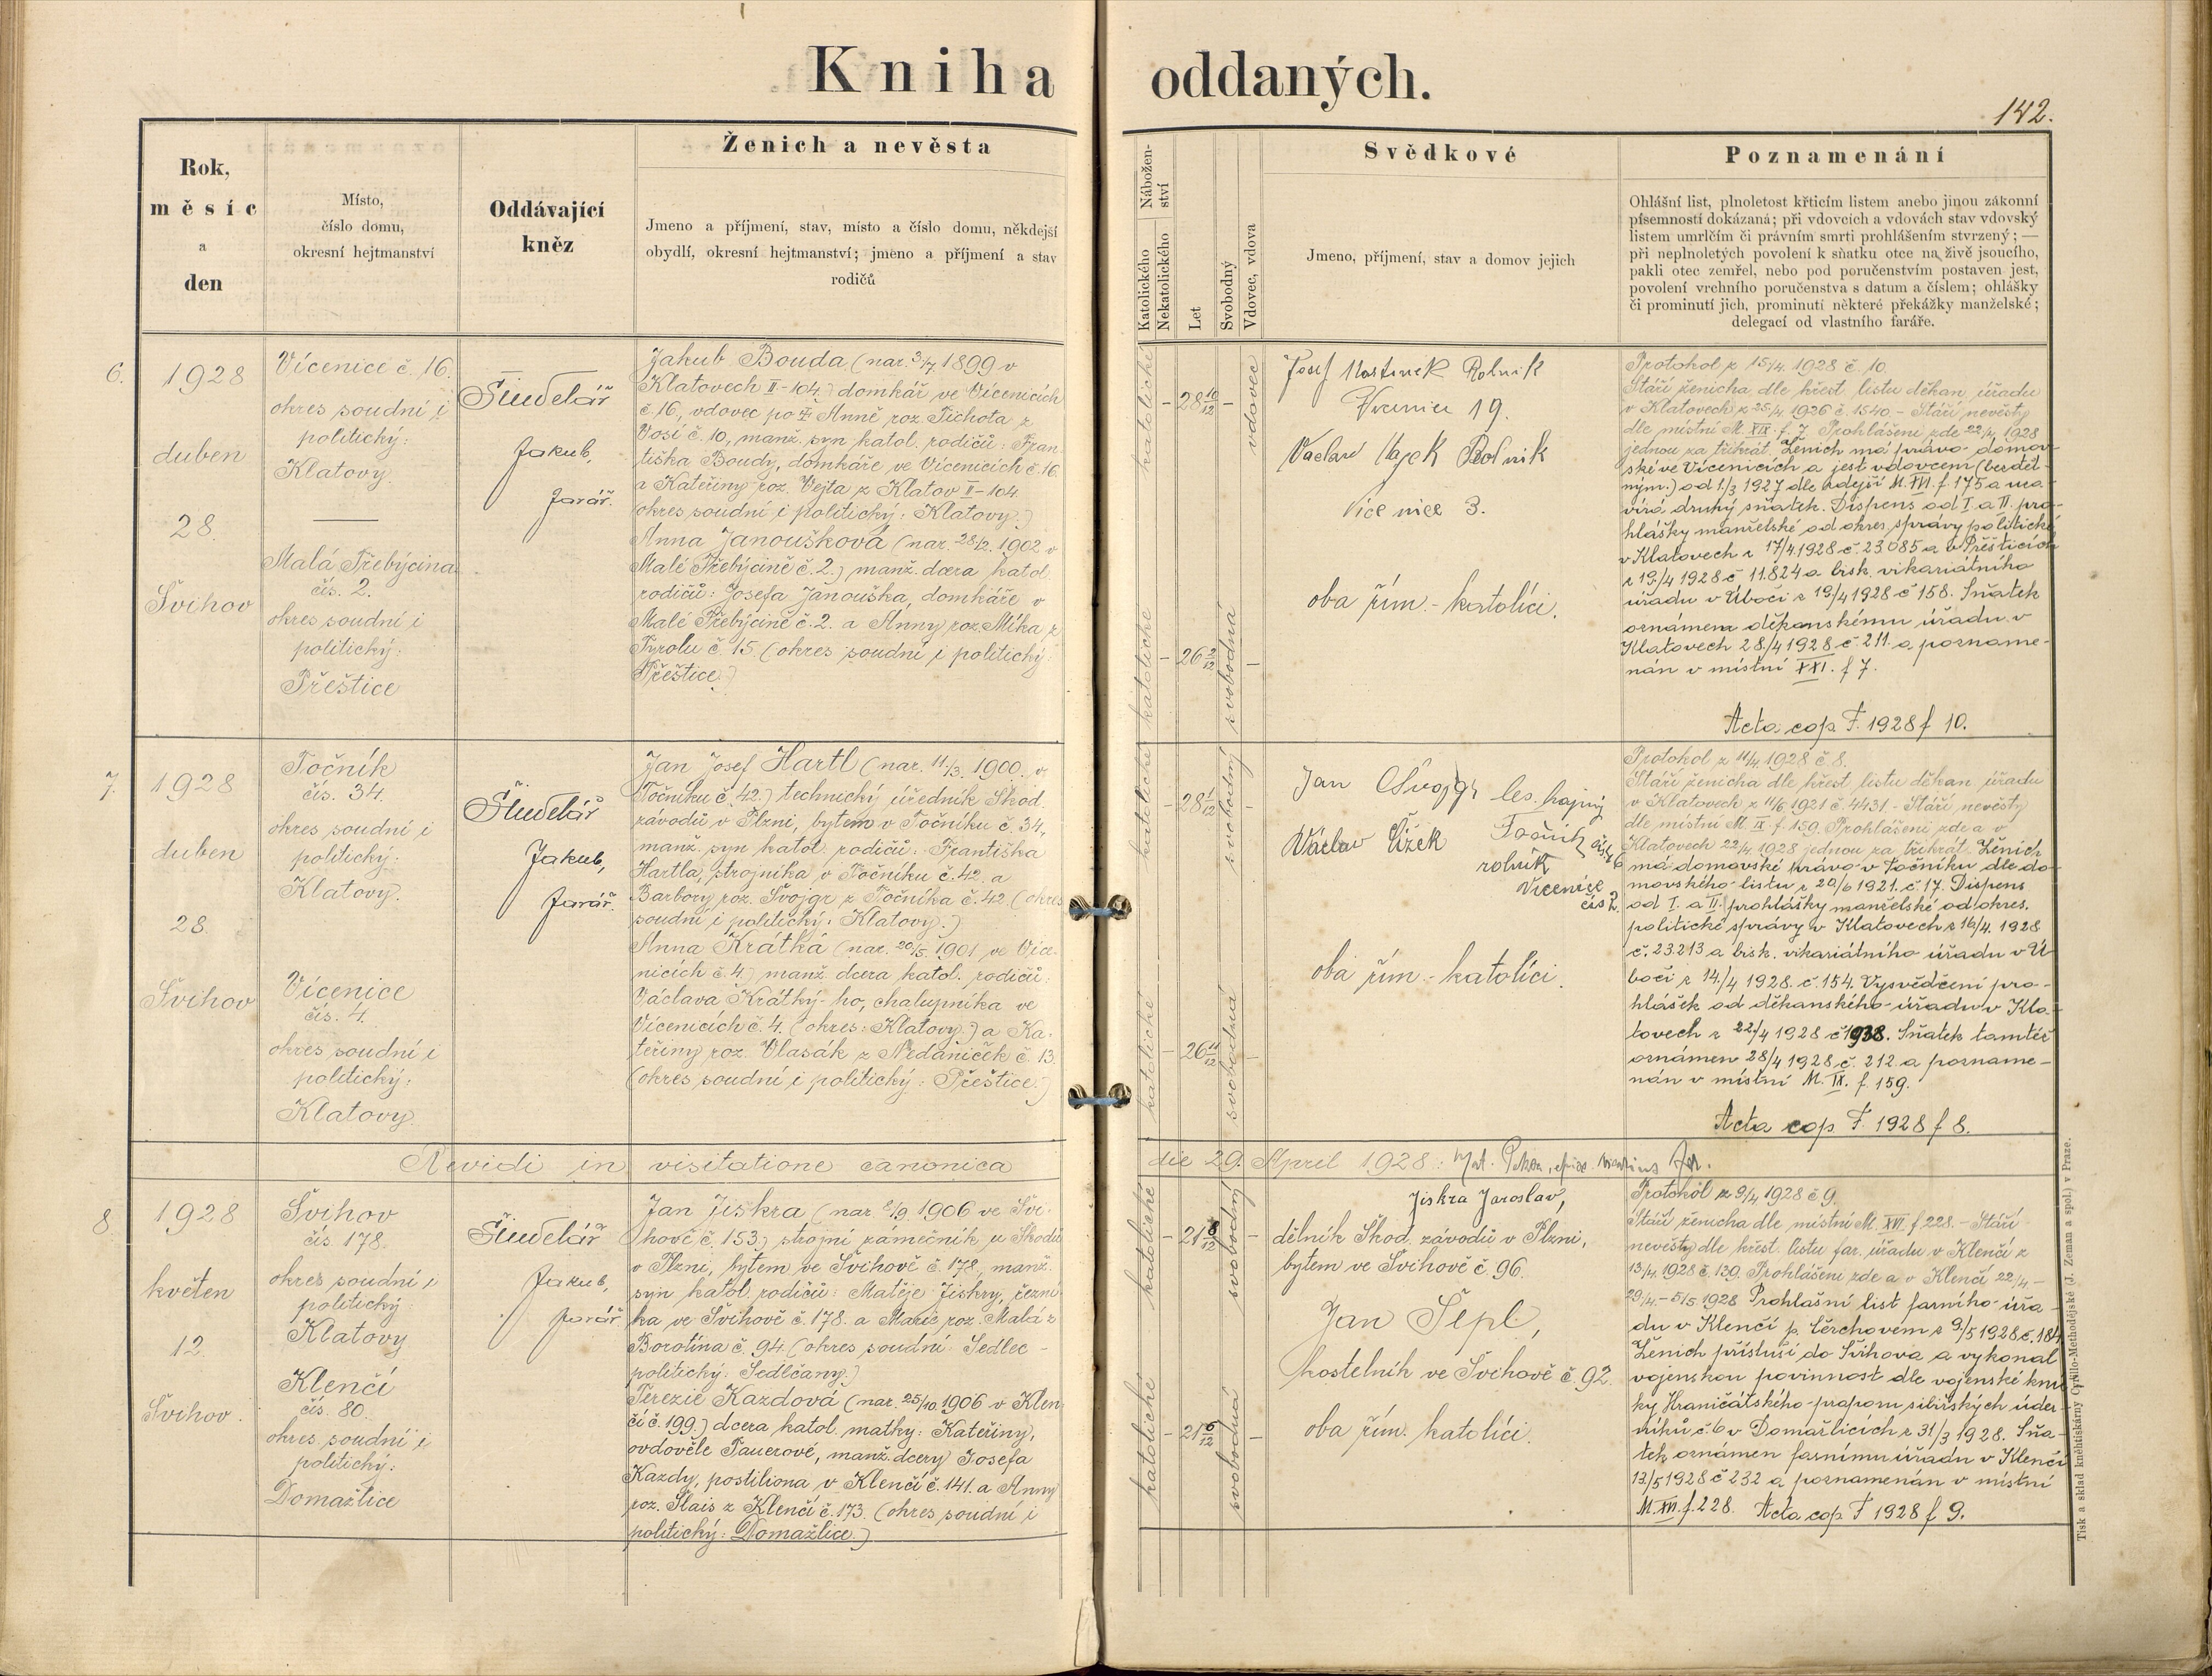 Kniha oddaných.
142.
Rok,
měsíc
a
den
Místo,
číslo domu,
okresní hejtmanství
Oddávající
kněz
Ženich a nevěsta
Jmeno a příjmení, stav, místo a číslo domu, někdejší
obydlí, okresní hejtmanství; jméno a příjmení a stav
rodičů
Nábožen-
ství
Katolického
Nekatolického
Let
Svobodný
Vdovec, vdova
Svědkové
Jmeno, příjmení, stav a domov jejich
Poznamenání
Ohlášní list, plnoletost křticím listem anebo jinou zákonní
písemností dokázaná; při vdovcích a vdovách stav vdovský
listem umrlčím či právním smrti prohlášením stvrzený; —
při neplnoletých povolení k sňatku otce na živě jsoucího,
pakli otec zemřel, nebo pod poručenstvím postaven jest,
povolení vrchního poručenstva s datum a číslem; ohlášky
či prominutí jich, prominutí některé překážky manželské;
delegací od vlastního faráře.
6.
1928
duben
28.
Švihov
Vícenice č. 16.
okres soudní i
politický:
Klatovy.
Malá Třebýcina
čís. 2.
okres soudní i
politický:
Přeštice
Šindelář
Jakub,
farář.
Jakub Bouda (nar. 3/7 1899 v
Klatovech II-104.) domkář ve Vícenicích
č. 16, vdovec po Anně roz. Tichota z
Vosí č. 10, manž. syn katol. rodičů: Fran
tiška Boudy, domkáře ve Vícenicích č. 16.
a Kateřiny roz. Vejta z Klatov II-104.
(okres soudní i politický: Klatovy.)
Anna Janoušková (nar. 28/2. 1902 v
Malé Třebýcině č. 2.) manž. dcera katol.
rodičů: Josefa Janouška, domkáře v
Malé Třebýcině č. 2. a Anny roz. Míka z
Tyrolu č. 15. (okres soudní i politický:
Přeštice.)
katolické
28 10/12
vdovec
katolické
26 2/12
svobodná
Josef Rolník
Vícenice 19.
Václav Hajek Rolník
Vícenice 3.
oba řím.-katolíci.
Protokol z 15/4. 1928 č. 10.
Stáří ženicha dle křest. listu děkan. úřadu
v Klatovech z 25/4 1926 č. 1540. - Stáří nevěsty
dle místní M. XIX. f. 7. Prohlášeni zde 22/4 1928
jednou za třikrát. Ženich má právo domov-
ské ve Vícenicích a jest vdovcem (bezdět-
ným.) od 1./3 1927 dle zdejší M. XVI. f. 175 a uza-
vírá druhý sňatek. Dispens od I. a II. pro-
hlášky manželské od okres. správy politické
v Klatovech z 17/4 1928 č. 23085 a v Přešticích
z 19./4 1928 č. 11.824 a bisk. vikariátního
úřadu v Úbočí z 19/4 1928 č. 158. Sňatek
oznámen děkanskému úřadu v
Klatovech 28./4 1928 č. 211. a pozname-
nán v místní XXI. f. 7.
Acta cop. F. 1928 f 10.
7.
1928
duben
28.
Švihov
Točník
čís. 34.
okres soudní i
politický:
Klatovy.
Vícenice
čís. 4.
okres soudní i
politický:
Klatovy.
Šindelář
Jakub,
farář.
Jan Josef Hartl (nar. 11/3. 1900. v
Točníku č. 42.) technický úředník Škod.
závodů v Plzni, bytem v Točníku č. 34,
manž. syn katol. rodičů: Františka
Hartla, strojníka v Točníku č. 42. a
Barbory roz. Švojgr z Točníka č. 42. (okres
soudní i politický: Klatovy.)
Anna Krátká (nar. 20/5. 1901 ve Více-
nicích č. 4.) manž. dcera katol. rodičů:
Václava Krátký-ho, chalupníka ve
Vícenicích č. 4. (okres: Klatovy.) a Ka-
teřiny roz. Vlasák z Nezdaniček č. 13.
(okres soudní i politický: Přeštice.)
katolické
28 1/12
svobodný
katolické
26 11/12
svobodná
Jan Švojgr les. hajný
Točník čís. 46
Václav Čížek rolník
Vícenice
čís 2.
oba řím.-katolíci.
Protokol z 11/4. 1928 č. 8.
Stáří ženicha dle křest. listu děkan. úřadu
v Klatovech z 11/6 1921 č. 4431 - Stáří nevěsty
dle místní M. IX. f. 159. Prohlášeni zde a v
Klatovech 22/4. 1928 jednou za třikrát. Ženich
má domovské právo v Točníku dle do-
movského listu z 20/6 1921. č. 17. Dispens
od I. a II. prohlášky manželské od okres.
politické správy v Klatovech z 16/4. 1928
č. 23.213 a bisk. vikariátního úřadu v Ú-
bočí z 14./4 1928. č. 154. Vysvědčení pro-
hlášek od děkanského úřadu v Kla-
tovech z 22/4 1928 č. 1938. Sňatek tamtéž
oznámen 28/4 1928 č. 212 a pozname-
nán v místní M. IX. f. 159.
Acta cop F. 1928 f 8.
Revidi in visitatione canonica die 29. April 1928:
8.
1928
květen
12.
Švihov.
Švihov
čís. 178.
okres soudní i
politický:
Klatovy
Klenčí
čís. 80.
okres soudní i
politický:
Domažlice
Šindelář
Jakub,
farář.
Jan Jiskra (nar. 2/9. 1906 ve Švi-
hově č. 153.) strojní zámečník u Škodů
v Plzni, bytem ve Švihově č. 178., manž.
syn katol. rodičů: Matěje Jiskry, řezní
ka ve Švihově č. 178. a Marie roz. Malá z
Borotína č. 94. (okres soudní: Sedlec -
politický: Sedlčany.)
Terezie Kazdová (nar. 25/10. 1906 v Klen
čí č. 199.) dcera katol. matky: Kateřiny,
ovdověle Pauerové, manž. dcery Josefa
Kazdy, postiliona v Klenčí č. 141. a Anny
roz. Slais z Klenčí č. 173. (okres soudní i
politický: Domažlice.)
katolické
21 8/12
svobodný
katolické
21 6/12
svobodná
Jiskra Jaroslav,
dělník Škod. závodů v Plzni,
bytem ve Švihově č. 96.
Jan Šepl,
kostelník ve Švihově č. 92.
oba řím. katolíci.
Protokol z 9/4 1928 č 9.
Stáří ženicha dle místní M. XVI. f. 228. - Stáří
nevěsty dle křest. listu far. úřadu v Klenčí z
13/4. 1928 č. 139. Prohlášeni zde a v Klenčí 22/4 -
29/4. - 5/5 1928 Prohlašní list farního úřa-
du v Klenčí p. Čerchovem z 9./5 1928 č. 184
Ženich přísluší do Švihova a vykonal
vojenskou povinnost dle vojenské kníž
ky Hraničátského praporu sibiřských úder-
níků č. 6 v Domažlicích z 31/3 1928. Sňa-
tek oznámen farnímu úřadu v Klenčí
12/5 1928 č 232 a poznamenán v místní
M. XVI. f. 228. Acta cop. F 1928 f 9.
Tisk a sklad knihtiskárny Cyrillo-Methodějské (J. Zeman a spol.) v Praze.